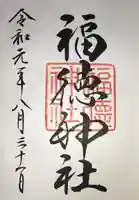 福徳神社
令和元年八月三十一日